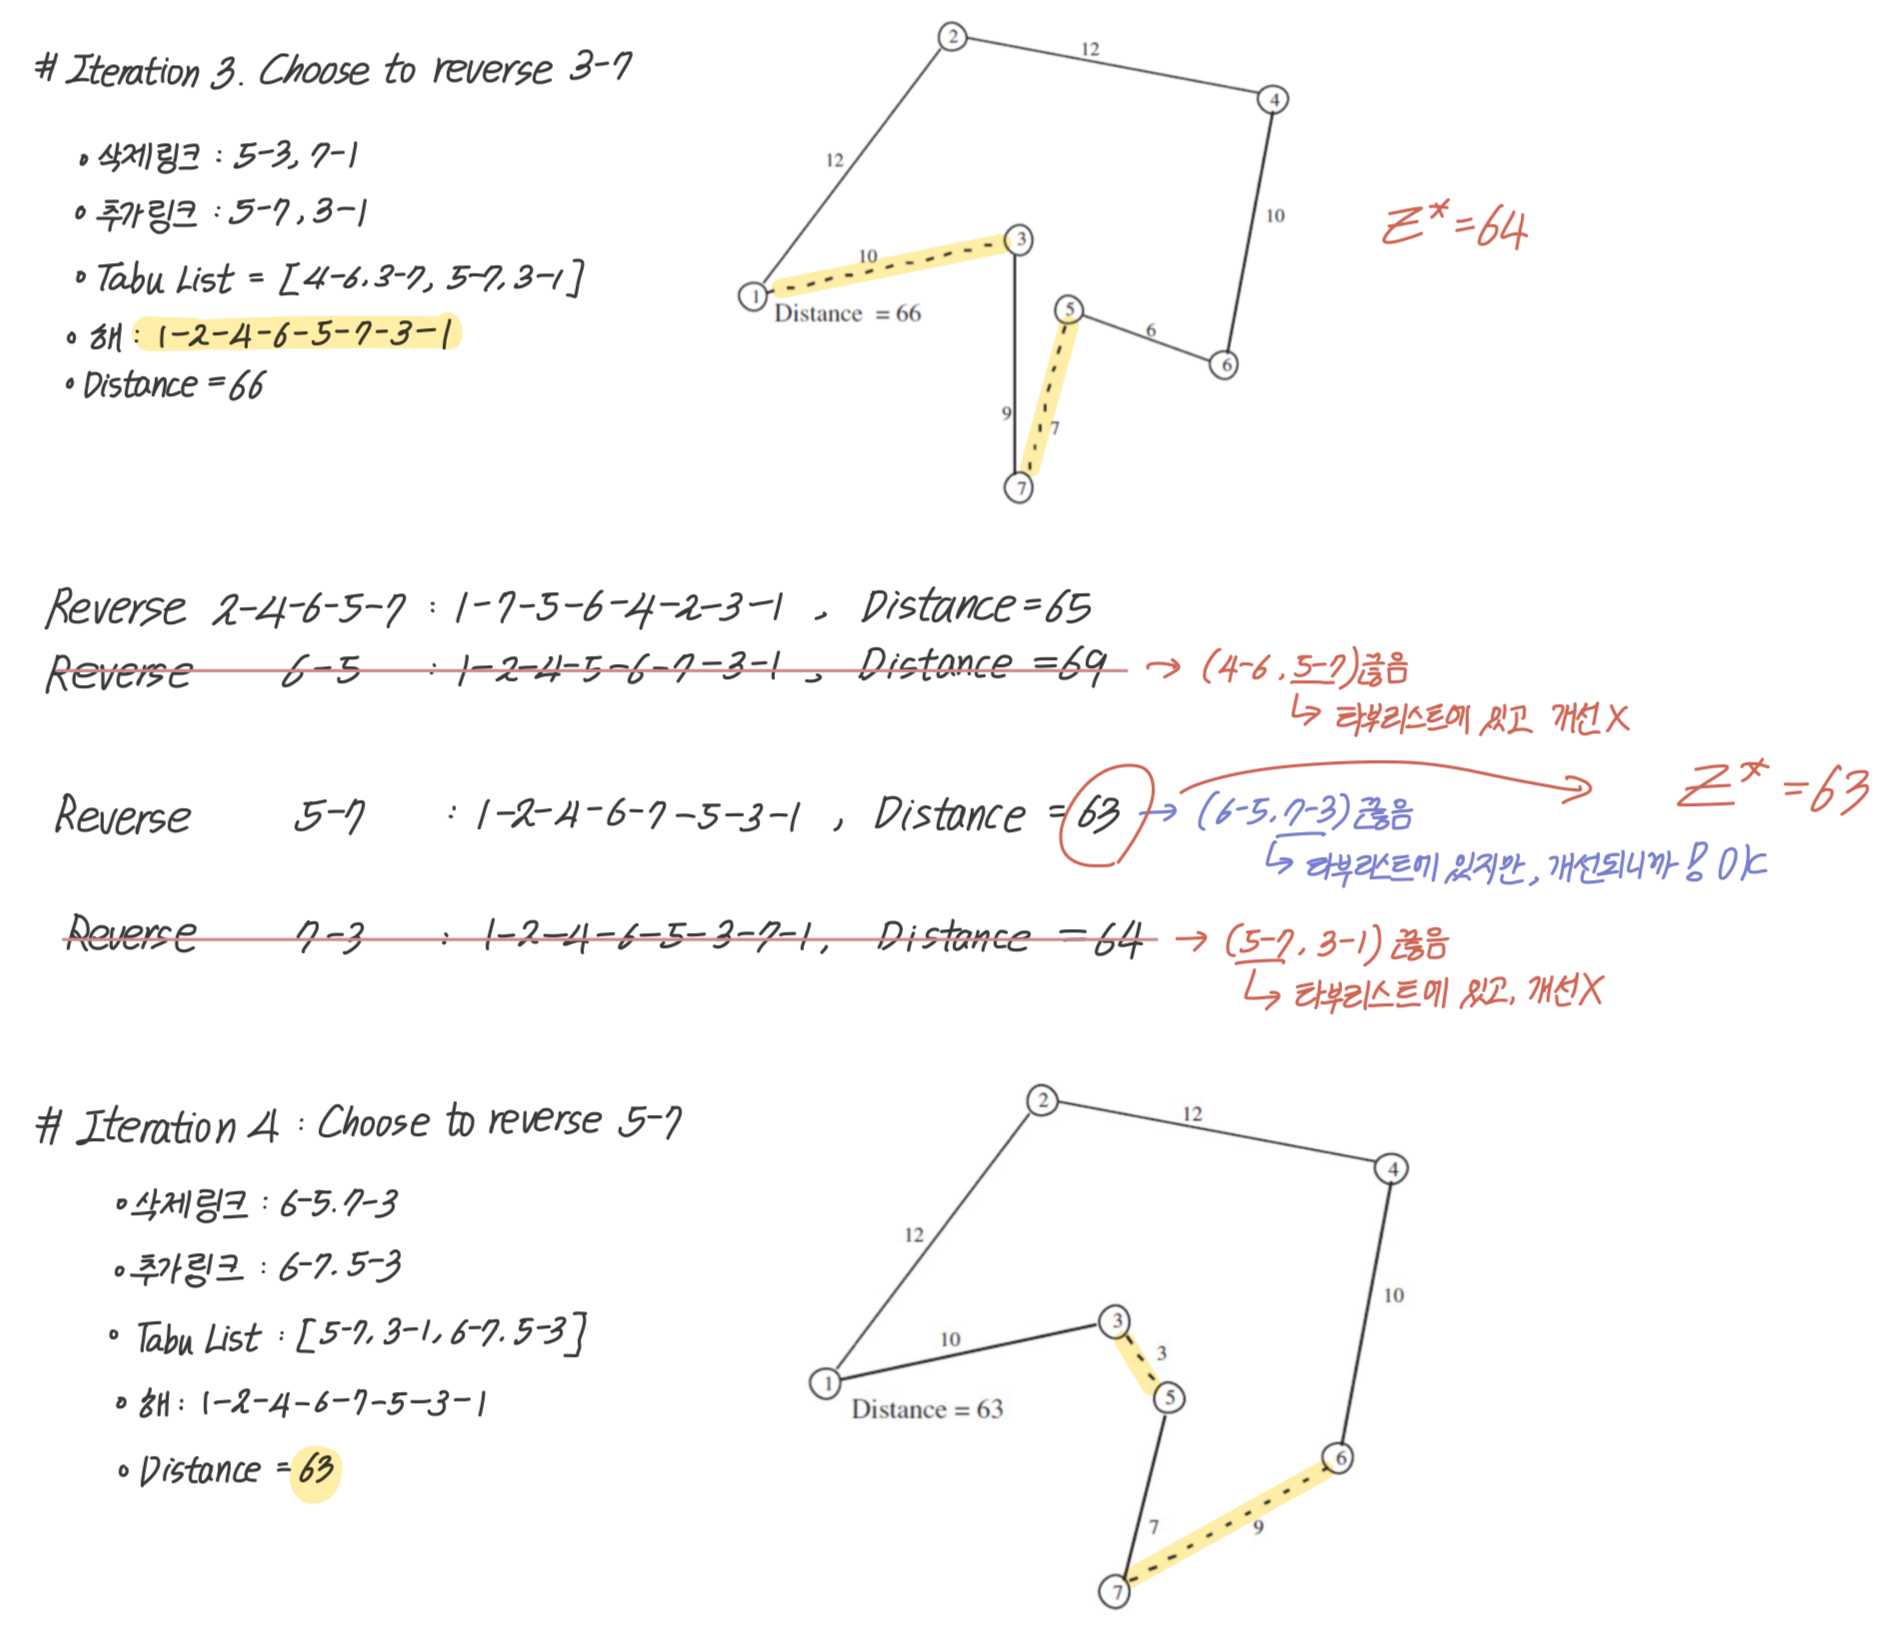 # Iteration 3. Choose to reverse 3-7
• 삭제링크 : 5-3, 7-1
• 추가링크 : 5-7, 3-1
• Tabu List = [4-6, 3-7, 5-7, 3-1]
• 해 : 1-2-4-6-5-7-3-1
• Distance = 66
2
12
4
12
10
3
10
1
Distance = 66
5
6
6
9
7
7
Z* = 64
Reverse 2-4-6-5-7 : 1-7-5-6-4-2-3-1 , Distance = 65
Reverse 6-5 : 1-2-4-5-6-7-3-1 , Distance = 69 → (4-6, 5-7)끊음
↳ 타부리스트에 있고 개선X
Reverse 5-7 : 1-2-4-6-7-5-3-1 , Distance = 63 → (6-5, 7-3)끊음
↳ 타부리스트에 있지만, 개선되니까 용OK
Z* = 63
Reverse 7-3 : 1-2-4-6-5-3-7-1, Distance = 64 → (5-7, 3-1) 끊음
↳ 타부리스트에 있고, 개선X
# Iteration 4 : Choose to reverse 5-7
• 삭제링크 : 6-5. 7-3
• 추가링크 : 6-7. 5-3
• Tabu List : [5-7, 3-1, 6-7. 5-3]
• 해 : 1-2-4-6-7-5-3-1
• Distance = 63
2
12
4
12
10
3
10
3
1
5
Distance = 63
6
7
9
7